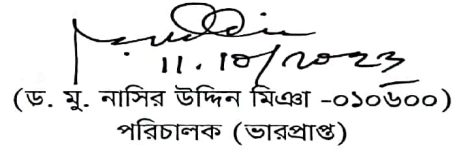 11.10/2023
(ড. মু. নাসির উদ্দিন মিঞা -০১০৬০০)
পরিচালক (ভারপ্রাপ্ত)